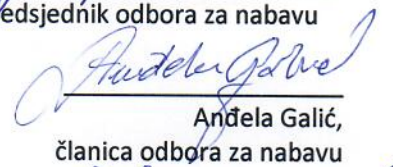 edsjednik odbora za nabavu
Anđela Galić
Anđela Galić,
članica odbora za nabavu